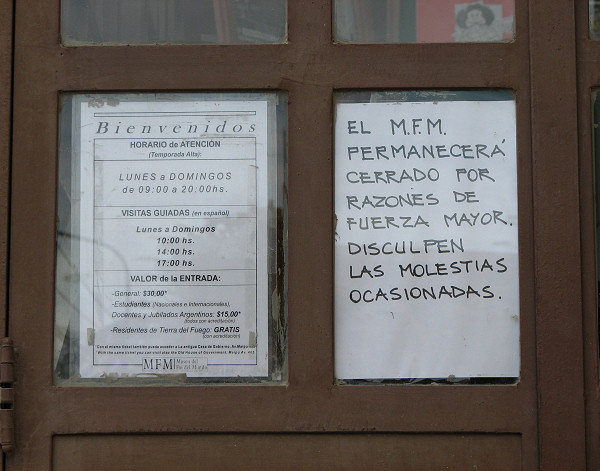 Bienvenidos
HORARIO de ATENCIÓN
(Temporada Alta):
LUNES a DOMINGOS
de 09:00 a 20:00hs.
VISITAS GUIADAS (en español)
Lunes a Domingos
10:00 hs.
14:00 hs.
17:00 hs.
VALOR de la ENTRADA:
-General: $30,00*
-Estudiantes (Nacionales e Internacionales),
Docentes y Jubilados Argentinos: $15,00*
(todos con acreditación)
-Residentes de Tierra del Fuego: GRATIS
(con acreditación)
Con el mismo ticket también puede acceder a La antigua Casa de Gobierno, Av. Maipú
*With the same ticket you can visit also the Old House of Government, Maipú Av.
MFM Museo del
Fin del Mundo
EL M.F.M.
PERMANECERÁ
CERRADO POR
RAZONES DE
FUERZA MAYOR.
DISCULPEN
LAS MOLESTIAS
OCASIONADAS.